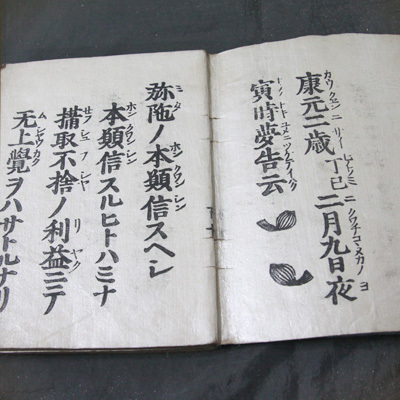 康元二歳丁巳二月九日夜
寅時夢告云
弥陁ノ本願信スヘシ
本願信スルヒトハミナ
摂取不捨ノ利益ニテ
无上覺ヲハサトルナリ